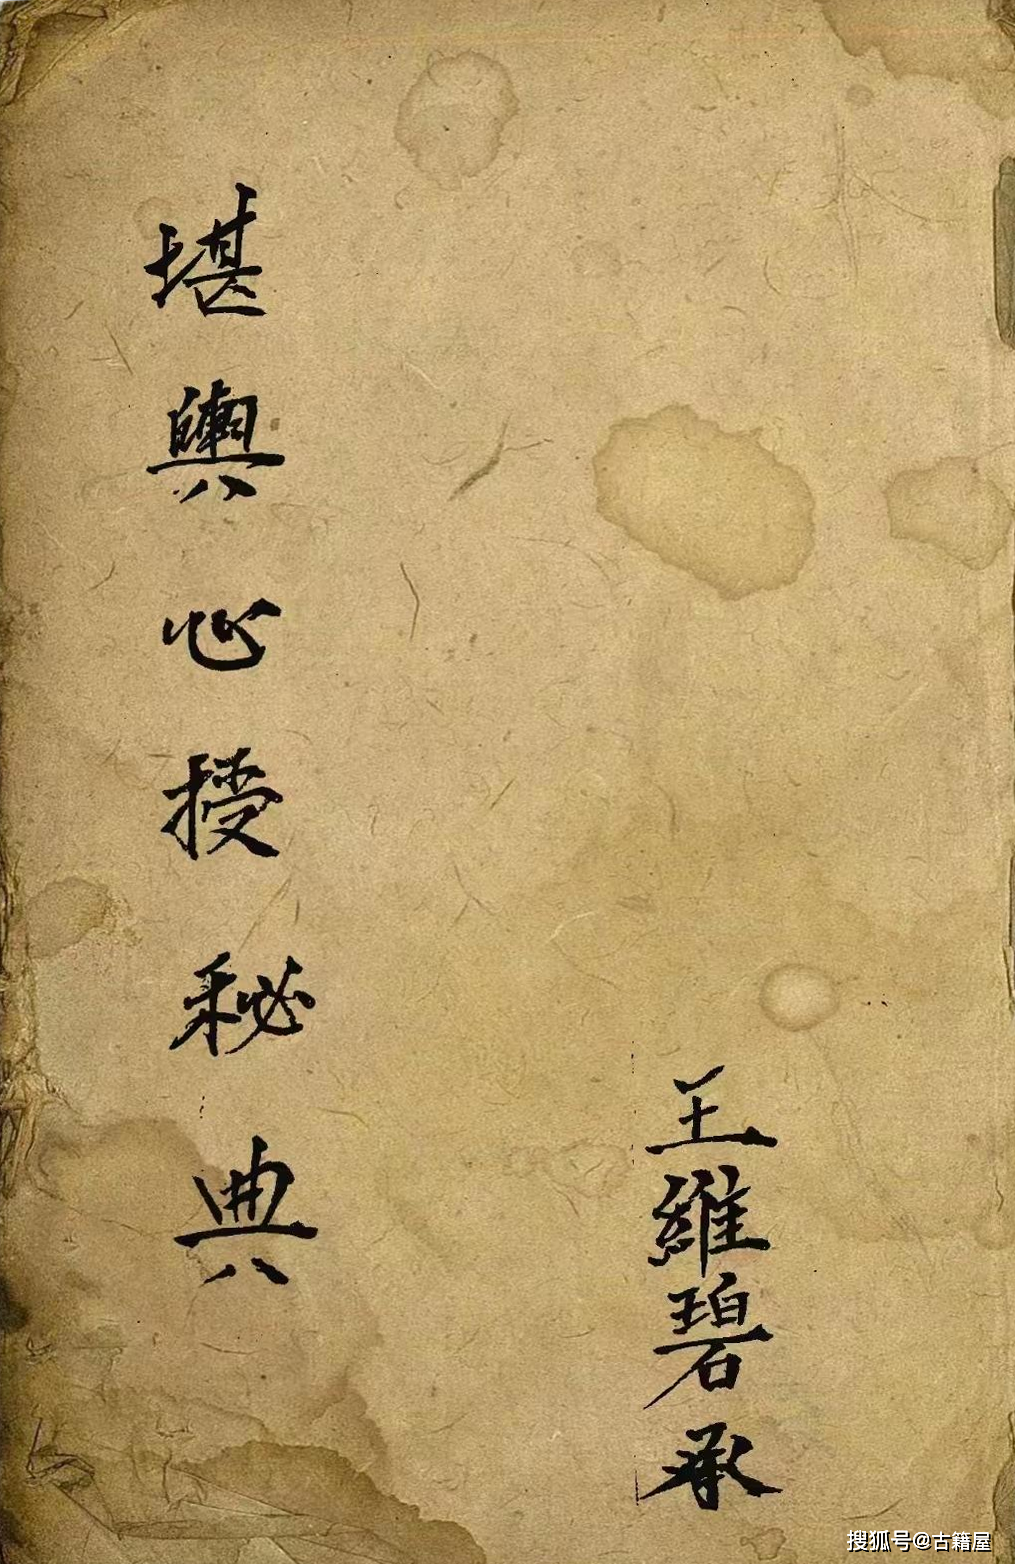 堪輿心授秘典
王維碧承
搜狐号@古籍屋